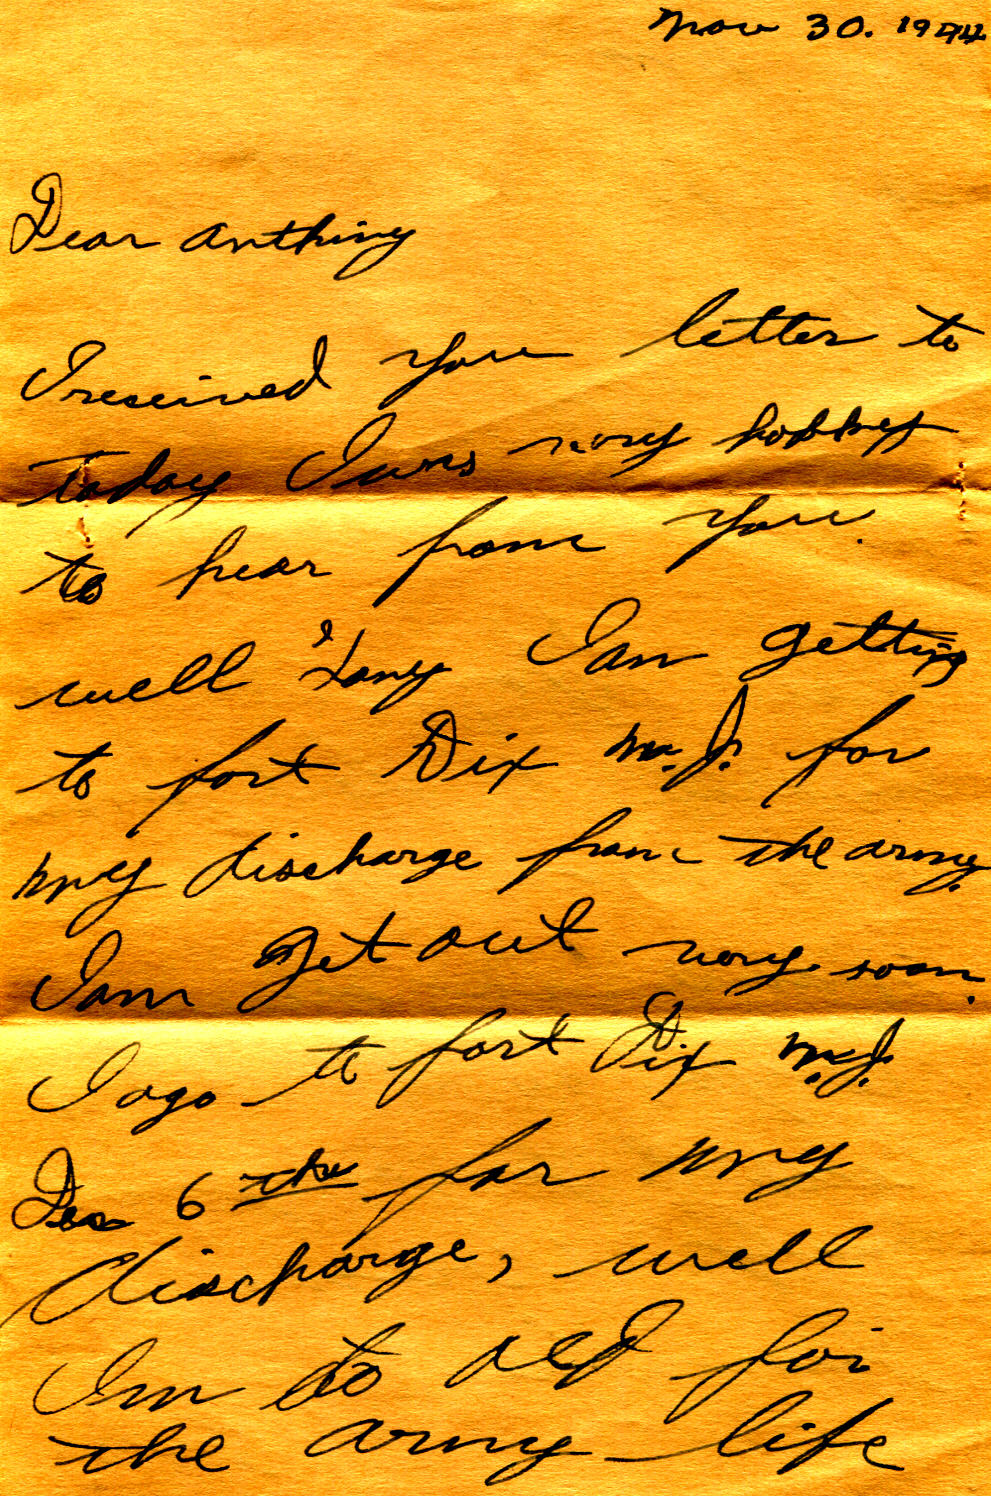 Nov 30. 1944
Dear Anthiny
I received you letter to
today I was very hoppey
to hear from you.
well Tony I am getting
to fort Dix N.J. for
my discharge from the army.
I am get out very soon.
I go to fort Dix N.J.
Dec 6 the for my
discharge, well
I'm to old for
the army life